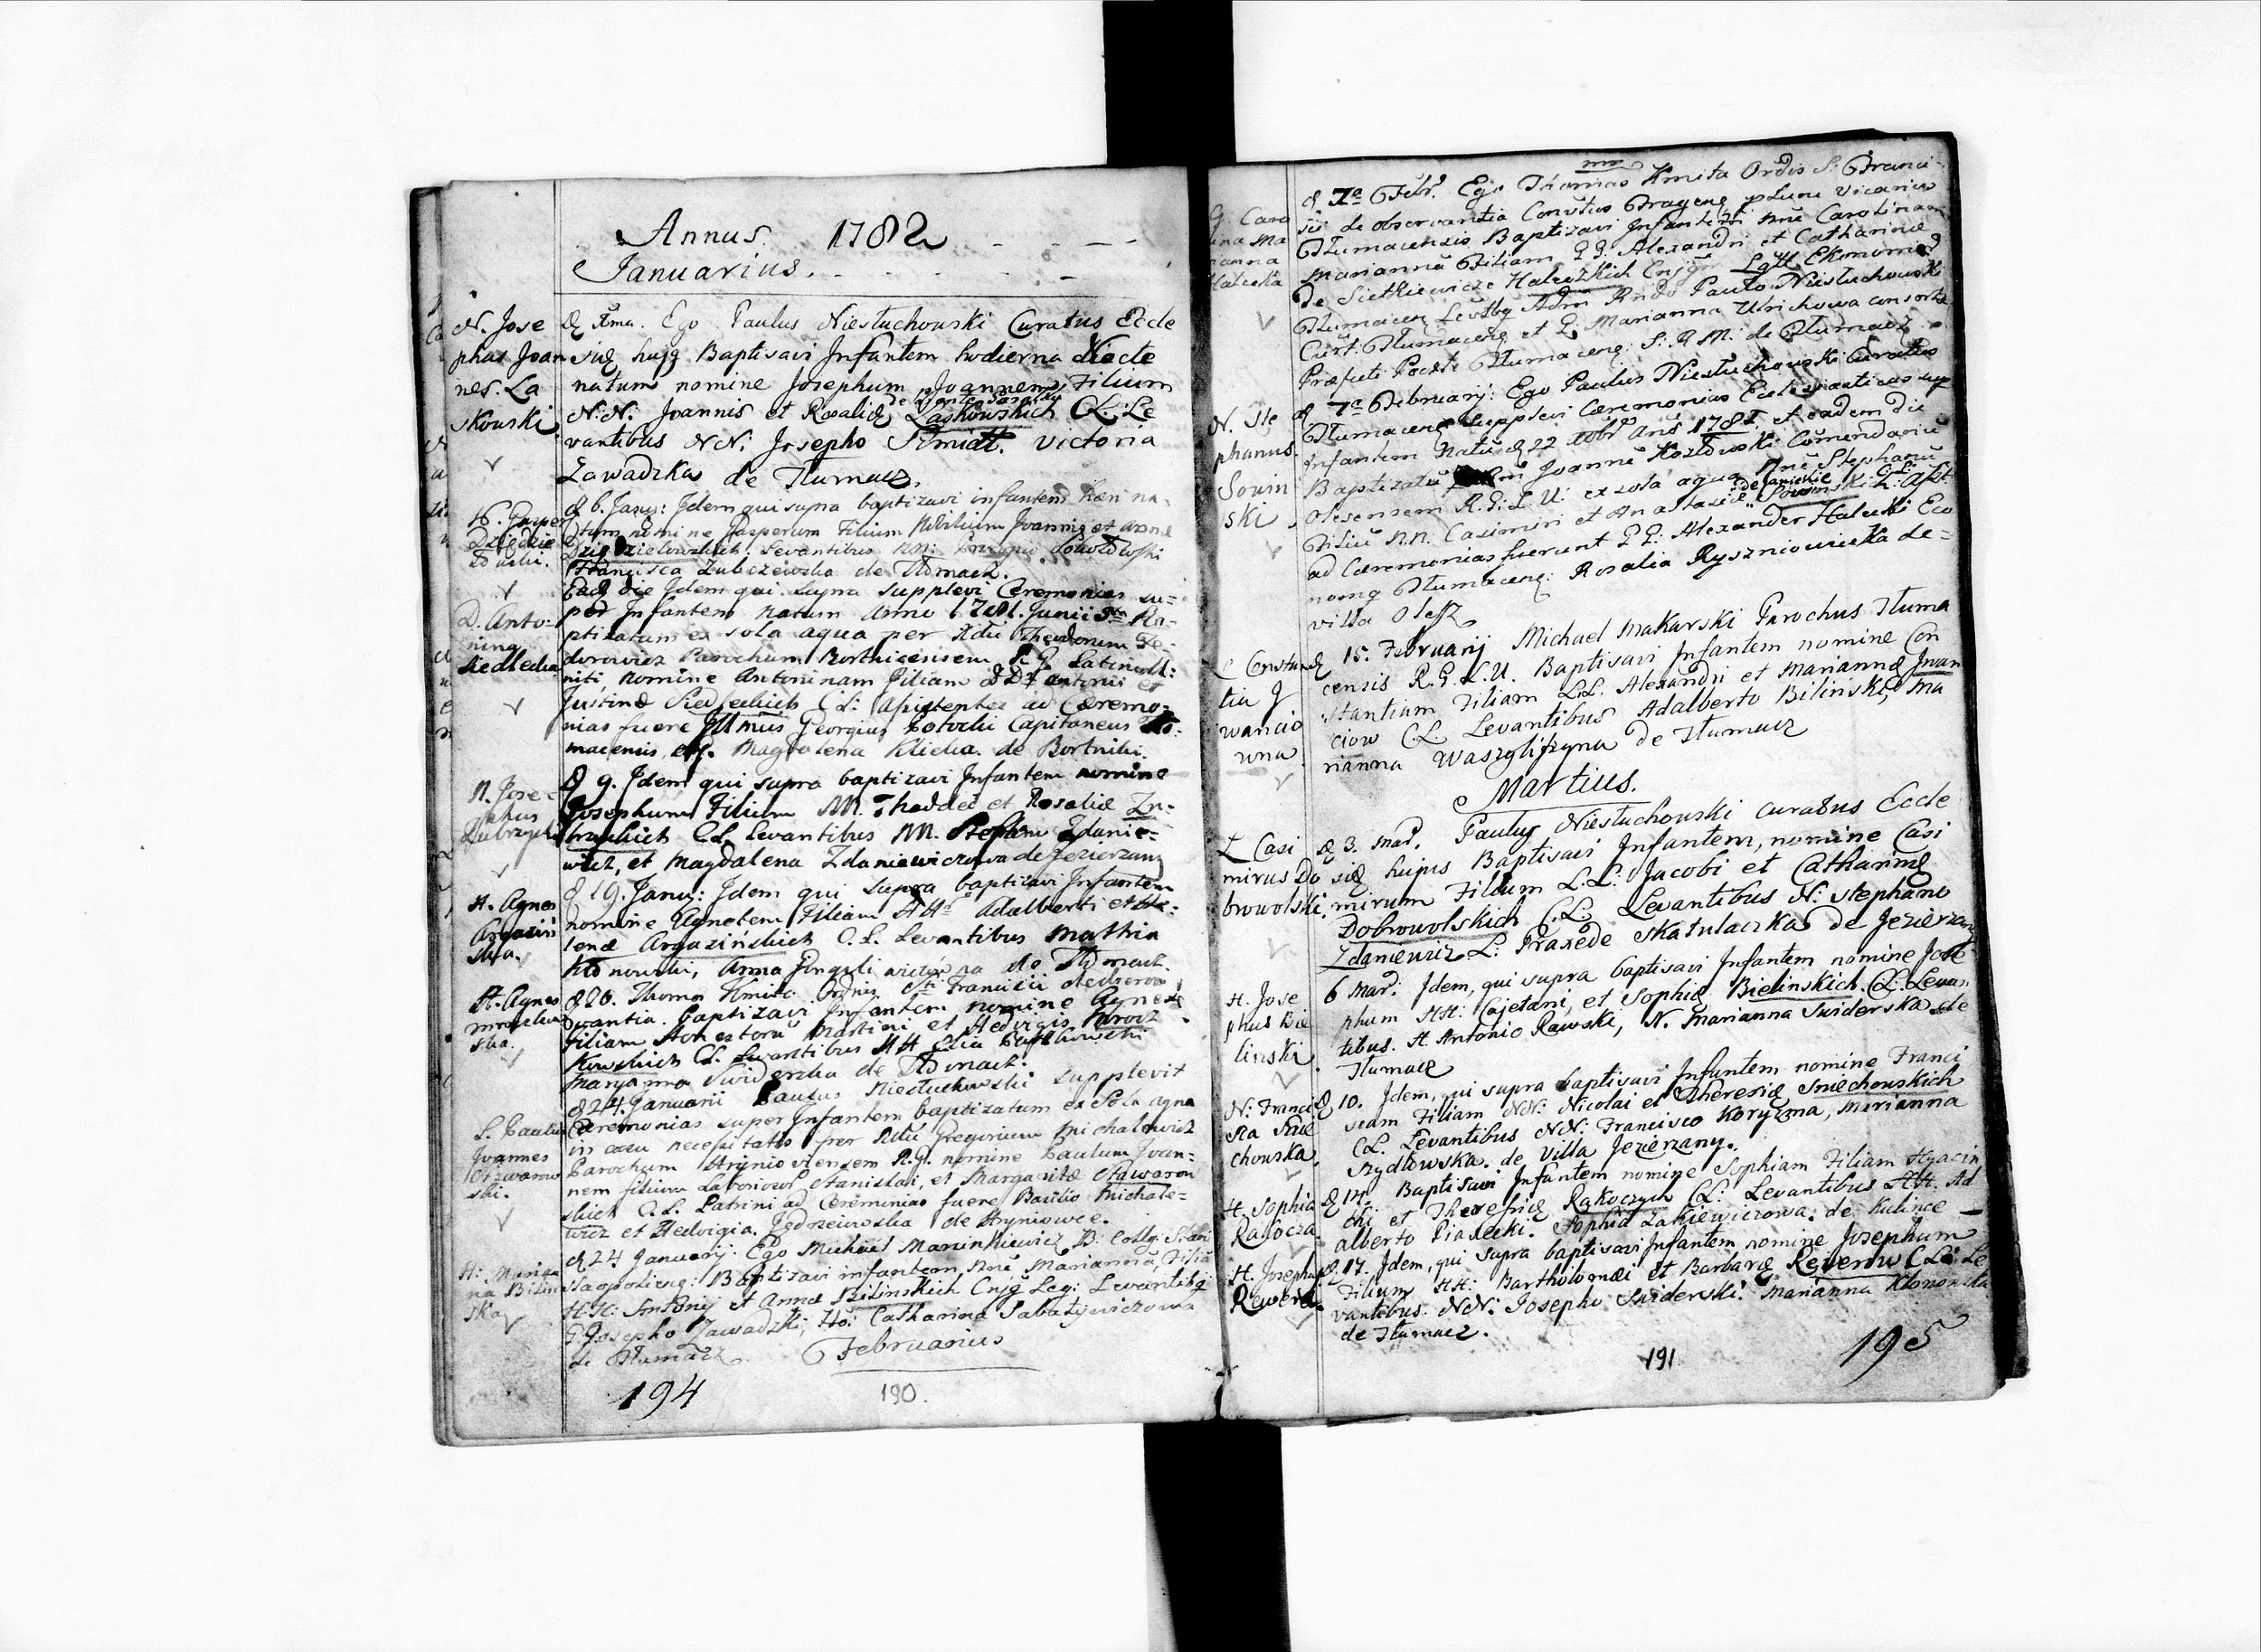 Annus 1782
Januarius.
N. Jose
phus Joan
nes La
skowski
D. 1ma. Ego Paulus Niestuchowski Curatus Eccle
siæ hujq Baptisavi Infantem hodierna Nocte
natum nomine Josephum Joannem Filium
N:N: Joannis et Rosaliæ Laskowskich CL: Le
vantibus NN: Josepho Szmidt. Victoria
Zawadzka de Tłumacz.
N. Gasper
D 6. Janu: Idem qui supra baptizavi infantem
nomine Gasperum Filium Nobilium Joannis et Annæ
Levantibus NN:
Francisca Zubczewska de Tłomacz.
D. Anto-
nina
Siedlecka
Eadē die Idem qui supra supplevi Ceremonias su-
per Infantem natum Anno 1781. Junii Ba-
ptizatam ex sola aqua per Rdū Theodorum Fe-
dorowicz Parochum Bortnicensem R. G. Latino U:
niti nomine Antoninam Filiam Antonii et
Justinæ Siedleckich C:L: Assistentes ad Ceremo-
nias fuere Illmus Georgius Potocki Capitaneus Tło-
macensis, et Magdalena Klicka de Bortniki.
N. Jose-
phus
Zubrzycki
D 9. Idem qui supra baptizavi Infantem nomine
Josephum Filium NN. Thaddei et Rosaliæ Zu-
brzyckich C.L. Levantibus NN. Stephano Zdanie-
wicz, et Magdalena Zdaniewiczowa de Jezierzany
H. Agnes
Argasiń
ska.
D 19. Janu: Idem qui supra baptizavi Infantem
nomine Agnetem Filiam HH. Adalberti et He-
lenæ Argazińskich C.L. Levantibus Mathia
Kłonowski, Anna de Tłomacz.
H. Agnes
Mrozkow
ska.
D 20. Thoma Kmita Ordnis Sti Francisci de Observa
vantia. baptizavi Infantem nomine Agnetem
Filiam Honestorū Martini et Hedvigis Mroz
kowskich C.L. Levantibus HH Elia
Maryanna Swiderska de Tłomacz.
S. Paulus
Joannes
Otawarow
ski.
D 24. Januarii Paulus Niestuchowski supplevit
Ceremonias super Infantem baptizatum ex Sola aqua
in casu necessitatis per Rdū Gregorium Michalewicz
Parochum Hrynioviensem R.G. nomine Paulum Joan-
nem filium Laborioso Stanislai, et Margaritæ
skich C.L. Patrini ad Ceremonias fuere Basilio Michale-
wicz et Hedvigia Jędrzeiowska de Hryniowce.
H: Marian
na Bilin
ska
D 24 Januarij: Ego Michael Marinkiewicz
Baptizavi infantem nnē Mariannā, Filiā
H:H: Antonij et Annæ Bilinskich Cnjū Leg: Levantibq
G Josepho Zawadzki, Ho: Catharina Sabatyiwiczowa
de Tłumacz.
Februarius
194
190.
G. Caro
lina Ma
rianna
Halecka
D 7a Febr. Ego Thomas Kmita Ordis S. Franci-
sci de observantia Convtus ptunc Vicarius
Tłumacensis Baptizavi Infantem nnē Carolinam
Mariannā Filiam G:G: Alexandri et Catharinæ
de Sietkiewicze Haleckich Cnjū Ekonomiæ
Tłumacen Levtbq Adm Rndo Paulo Niestuchowski
Curt: Tłumaceng et G. Marianna Ulrichowa consorte
Præfecti Tłumaceng: S: R M: de Tłumacz
N. Ste
phanus
Sowin
ski.
D 7a Februarij: Ego Paulus Niestuchowski Curatus
Tłumaceng supplevi Cæremonias Ecclesiasticas sup
Infantem Natū D 22 Xbr Anō 1781. et eadem die
Baptizatū Joannē Kozłowski Comendariū
Olesensem R:G:L:U: ex sola aqua Nnē Stephanū
Filiū N.N. Casimiri et Anastasiæ Sowinski
ad Cæremonias fuerunt G G: Alexander Halecki Eco
nomq Tłumaceng: Rosalia Ryszniowiecka de
villa Olesz
L Constan
tia J
wancio
wna.
D 15. Februarij Michael Makarski Parochus Tłuma
censis R.G.L.U. Baptisavi Infantem nomine Con
stantiam Filiam LL. Alexandri et Mariannæ Jwan
ciow CL Levantibus Adalberto Bilinski, Ma
rianna de Tłumacz
Martius.
L Casi
mirus Do
browolski.
D 3. Mar. Paulus Niestuchowski Curatus Eccle
siæ hujus Baptisavi Infantem, nomine Casi
mirum Filium L:L: Jacobi et Catharinæ
Dobrowolskich C.L. Levantibus N: Stephano
Zdaniewicz L: Praxede Skatulaczka de Jezierzany
H. Jose
phus Bie
linski
6 Mar: Idem, qui supra baptisavi Infantem nomine Jose
phum HH: Cajetani, et Sophiæ Bielinskich CL: Levan
tibus. H. Antonio Rawski, N. Marianna Swiderska de
Tłumacz
N: Franci
ska Snie
chowska.
D 10. Idem, qui supra baptisavi Infantem nomine Franci
scam Filiam NN: Nicolai et Theresiæ Sniechowskich
CL. Levantibus NN: Francisco Koryzma, Marianna
Szydłowska. de Villa Jezierzany.
H. Sophia
Rakocza.
D 14. Baptisavi Infantem nomine Sophiam Filiam Hyacin
thi et Theresiæ Rakoczych CL: Levantibus HH. Ad
alberto Piasecki. Sophia Zakiewiczowa. de Kulince
H. Josephus
Rewera.
D. 17. Idem, qui supra baptisavi Infantem nomine Josephum
Filium HH: Bartholomæi et Barbaræ Rewerow CL: Le
vantibus: NN: Josepho Swiderski. Marianna Klonowska
de Tłumacz.
191
195